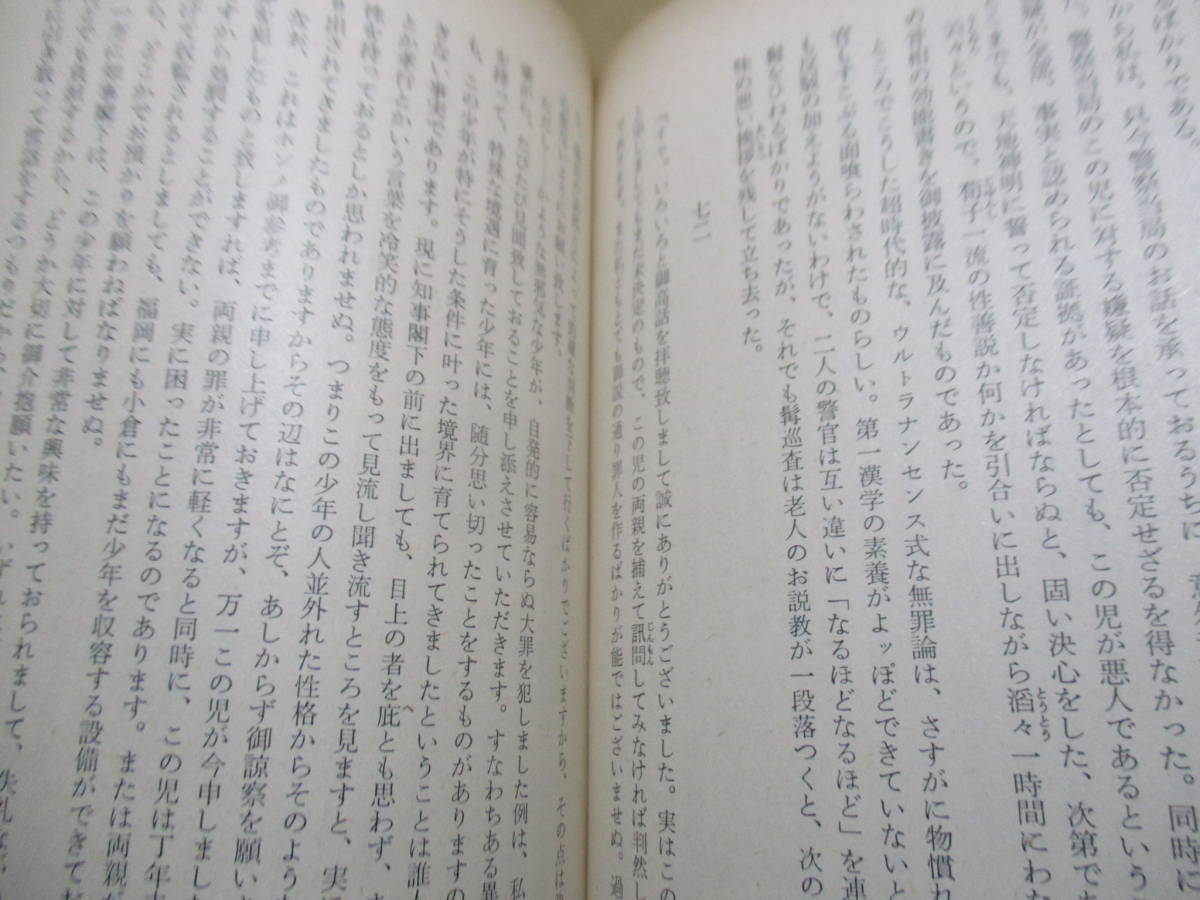 るばかりである。
から私は、只今警察当局のお話を承っておるうちに
警察当局のこの児に対する嫌疑を根本的に否定せざるを得なかった。同時に
疑が全部、事実と認められる証拠があったとしても、この児が悪人であるという
こまでも、天地神明に誓って否定しなければならぬと、固い決心をした、次第でも
云々というので、荀子一流の性善説か何かを引合いに出しながら滔々一時間にわた
の骨相の効能書きを御披露に及んだものであった。
ところでこうした超時代的な、ウルトラナンセンス式な無罪論は、さすがに物慣れ
官も手とぶる面喰らわされたものらしい。第一漢学の素養がよッぽどできていないと
も反駁の加えようがないわけで、二人の警官は互い違いに「なるほどなるほど」を連
解をひねるばかりであったが、それでも髯巡査は老人のお説教が一段落つくと、次の
味の悪い挨拶を残して立ち去った。
七二
「イヤ、いろいろと御高話を拝聴致しまして誠にありがとうございました。実はこの
と申しましてもまだ未決定のもので、この児の両親を捕えて訊問してみなければ判然し
であります。また私どもとても御説の通り罪人を作るばかりが能ではございませぬ。過
を下して行くばかりでございますから、その点は
お願い致します。
ただし――かような無邪気な少年が、自発的に容易ならぬ大罪を犯しました例は、私
たびたび見聞致しておることを申し添えさせていただきます。すなわちある異
特殊な境遇に育った少年には、随分思い切ったことをするものがありますの
も、この少年が特にそうした条件に叶った境界に育てられてきましたということは誰人
きない事実であります。現に知事閣下の前に出ましても、目上の者を庇とも思わず、
とか孝行とかいう言葉を冷笑的な態度をもって見流し聞き流すところを見ますと、実
性を持っておるとしか思われませぬ。つまりこの少年の人並外れた性格からそのよう
み出されてきましたものでありますからその辺はなにとぞ、あしからず御諒察を願い
なお、これはホンノ御参考までに申し上げておきますが、万一この児が今申しまし
を犯したものと致しますれば、両親の罪が非常に軽くなると同時に、この児は丁年
すから処罰することができない。実に困ったことになるのであります。または両親
げて放駆されるとしましても、福岡にも小倉にもまだ少年を収容する設備ができてお
、どこかでお預かりを願わねばなりませぬ。
この少年に対して非常な興味を持っておられまして、失礼な
するから、どうか大切に御介抱願いたい。いずれ
に引き取って世話をするつもりだから